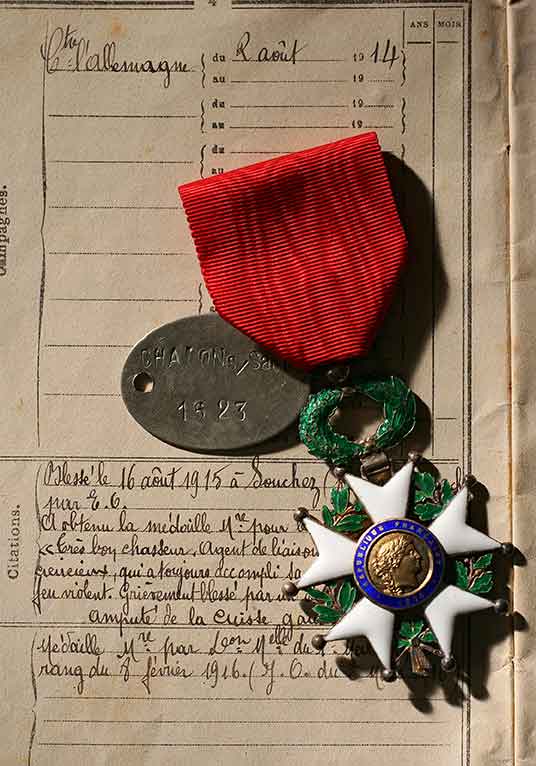 ANS MOIS
Ctre l'Allemagne du 2 août 1914
au 19
du 19
au 19
du
au
du
Campagnes.
CHACON
1923
Citations.
Blessé le 16 août 1915 à Souchez (
par E. O.
A obtenu la médaille Mre pour
« Très bon chasseur, Agent de liaison
qui a toujours accompli sa
feu violent. Grièvement blessé par un
amputé de la cuisse gau
Médaille Mre par Don Melle du
rang du 8 février 1916. (J. O. du
REPUBLIQUE FRANÇAISE